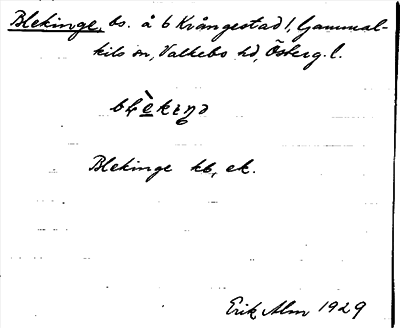 Blekinge, bs. å 6 Krångestad /, Gammal-
kils sn, Valkebo hd, Österg. l.
Blekinge kb, ek.
Erik Alm 1929